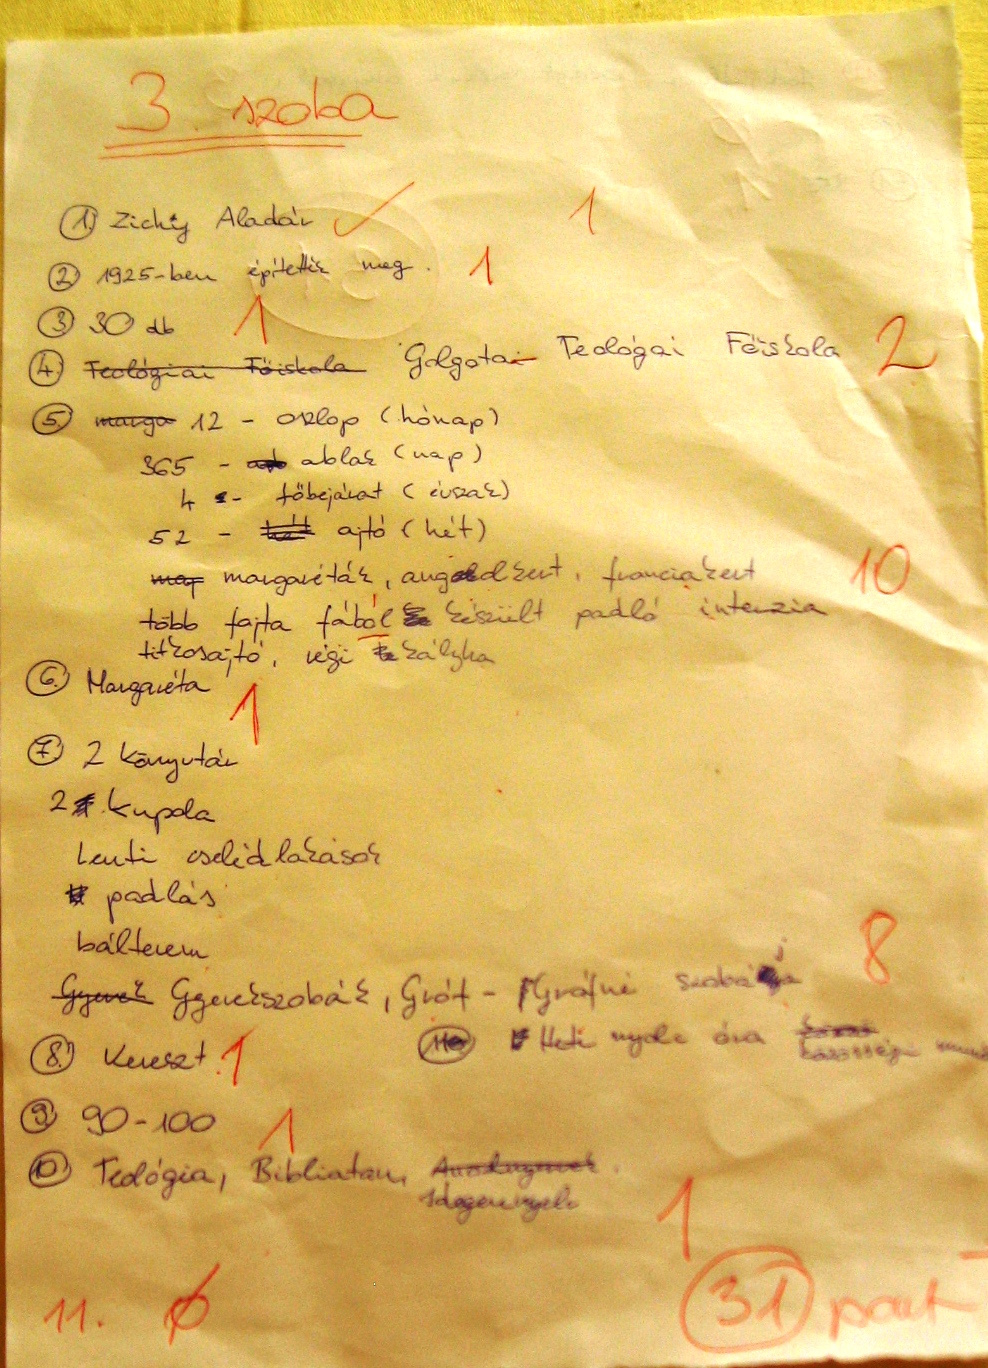 3. szoba
1. Zichy Aladár 1
2. 1925-ben építették meg. 1
3. 30 db 1
4. Teológiai Főiskola Golgotai Teológai Főiskola 2
5. marga 12 - oszlop (hónap)
365 - ablak (nap)
4 - főbejárat (évszak)
52 - hét ajtó (hét)
margaréták, angolkert, franciakert 10
több fajta fából készült padló intenzia
titkosajtó, régi kályha
6. Margaréta 1
7. 2 könyvtár
2 kupola
Lenti cselédlakások
padlás
bálterem 8
Gyerek Gyerekszobák, Gróf - Grófné szobája
8. Kereszt 1 11. Heti nyolc óra közösségi
9. 90-100 1
10. Teológia, Bibliatan,
Idegennyelv 1
11. 0 31 pont